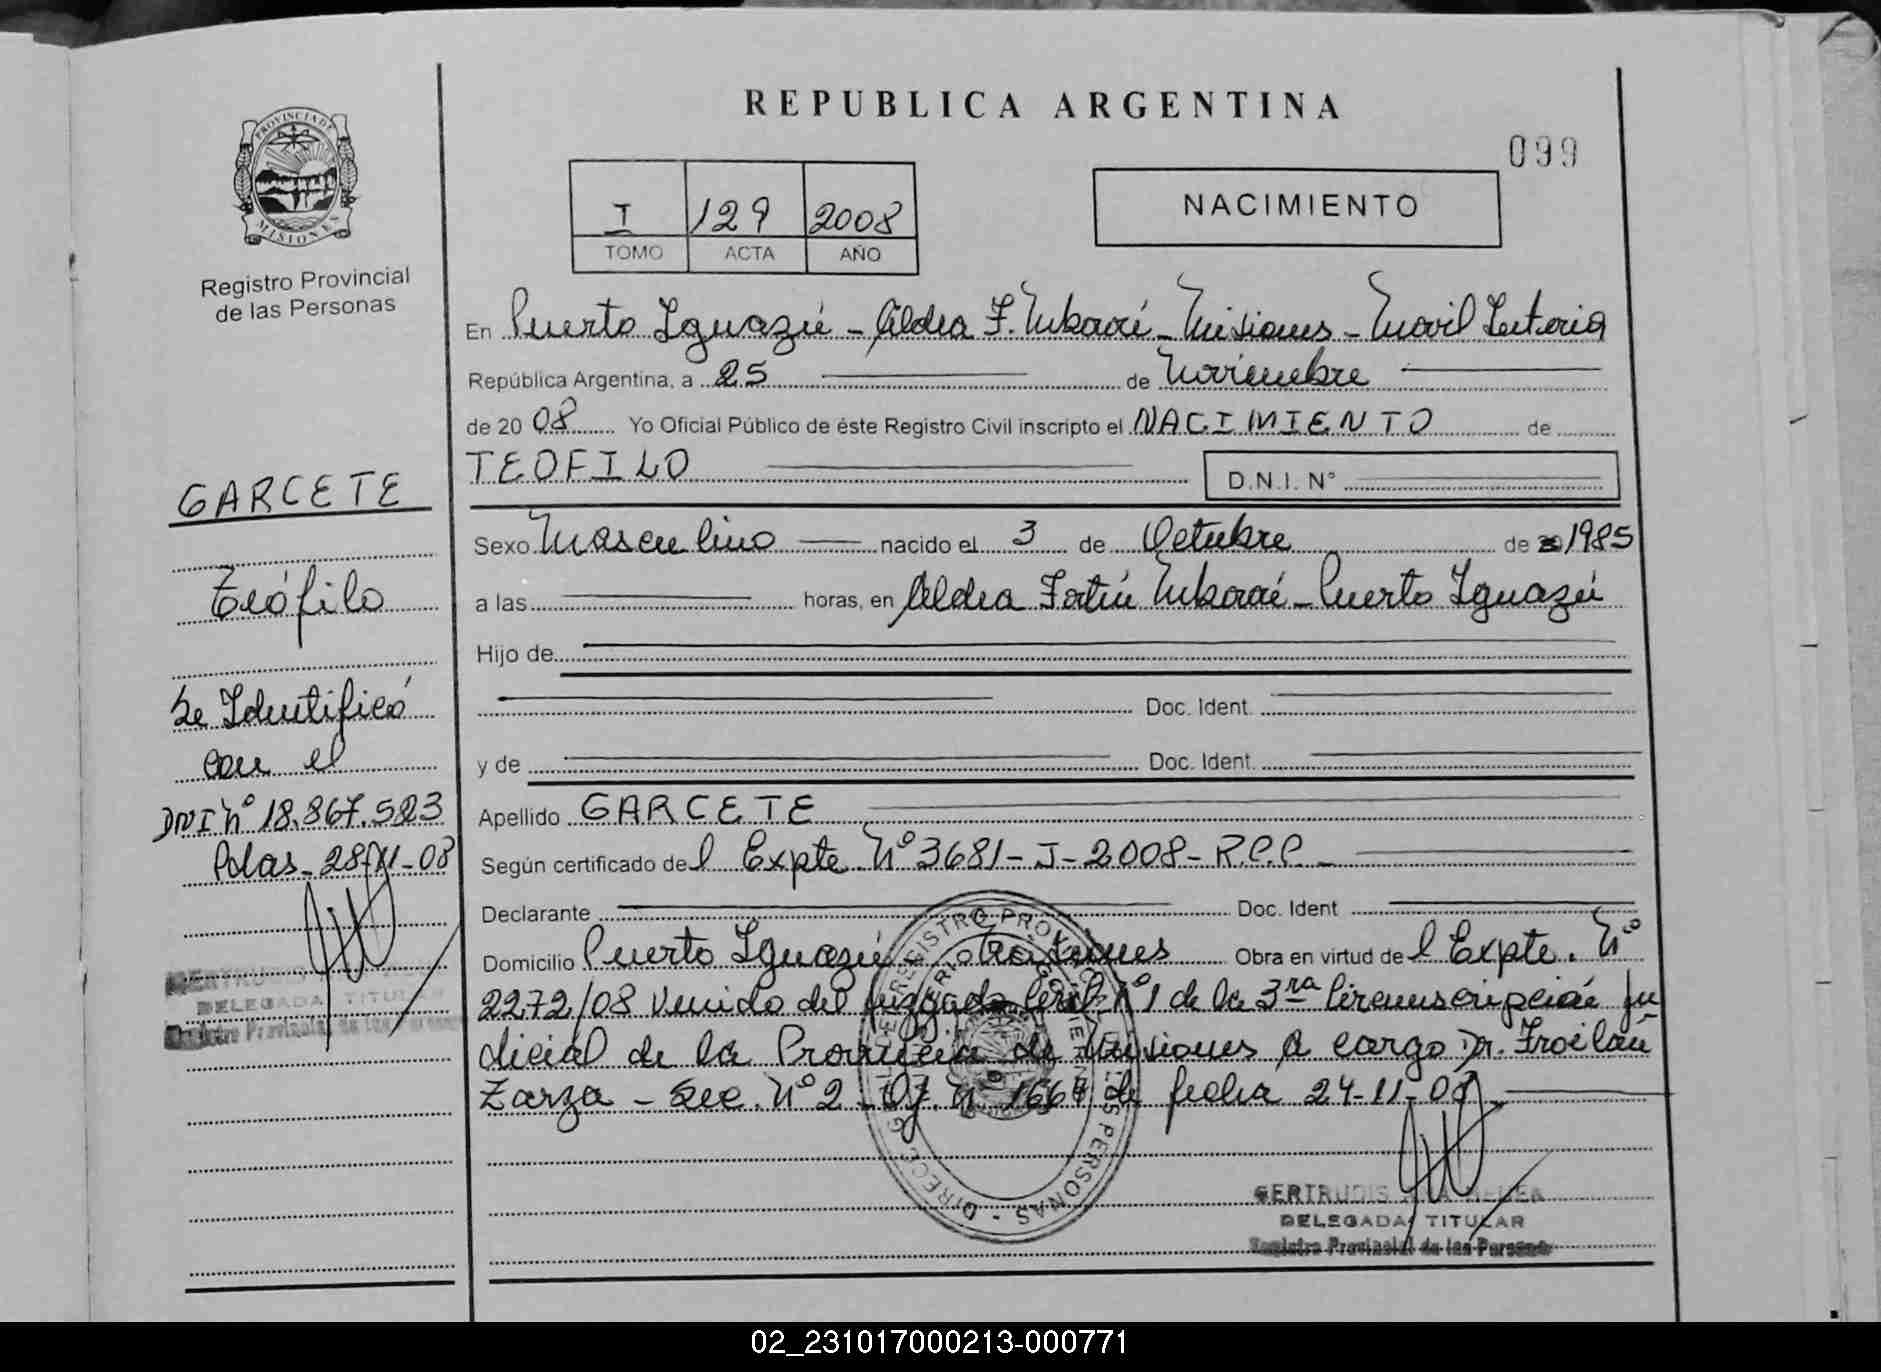 REPUBLICA ARGENTINA
099
PROVINCIA DE
MISIONES
Registro Provincial
de las Personas
I 129 2008
TOMO ACTA AÑO
NACIMIENTO
En Puerto Iguazú - Aldea F. Mbororé - Misiones - Movil
República Argentina, a 25 de Noviembre
de 2008 Yo Oficial Público de éste Registro Civil inscripto el NACIMIENTO de
TEOFILO D.N.I. N°
Sexo Masculino nacido el 3 de Octubre de 1985
a las horas, en Aldea Fortín Mbororé - Puerto Iguazú
Hijo de
Doc. Ident.
y de Doc. Ident.
Apellido GARCETE
Según certificado del Expte. Nº 3681-J-2008-R.P.P.
Declarante Doc. Ident
Domicilio Puerto Iguazú - Misiones Obra en virtud del Expte. Nº
2272/08 venido del Juzgado Civil Nº 1 de la 3ra Circunscripción Ju
dicial de la Provincia de Misiones a cargo Dr. Froilán
Zarza - Sec. Nº 2 - Of. Nº 1667 de fecha 24-11-08
GARCETE
Teófilo
Se Identificó
con el
DNI Nº 18.867.523
Pdas. 28-11-08
GERTRUDIS
DELEGADA TITULAR
Registro Provincial de las Personas
GERTRUDIS
DELEGADA TITULAR
Registro Provincial de las Personas
02_231017000213-000771